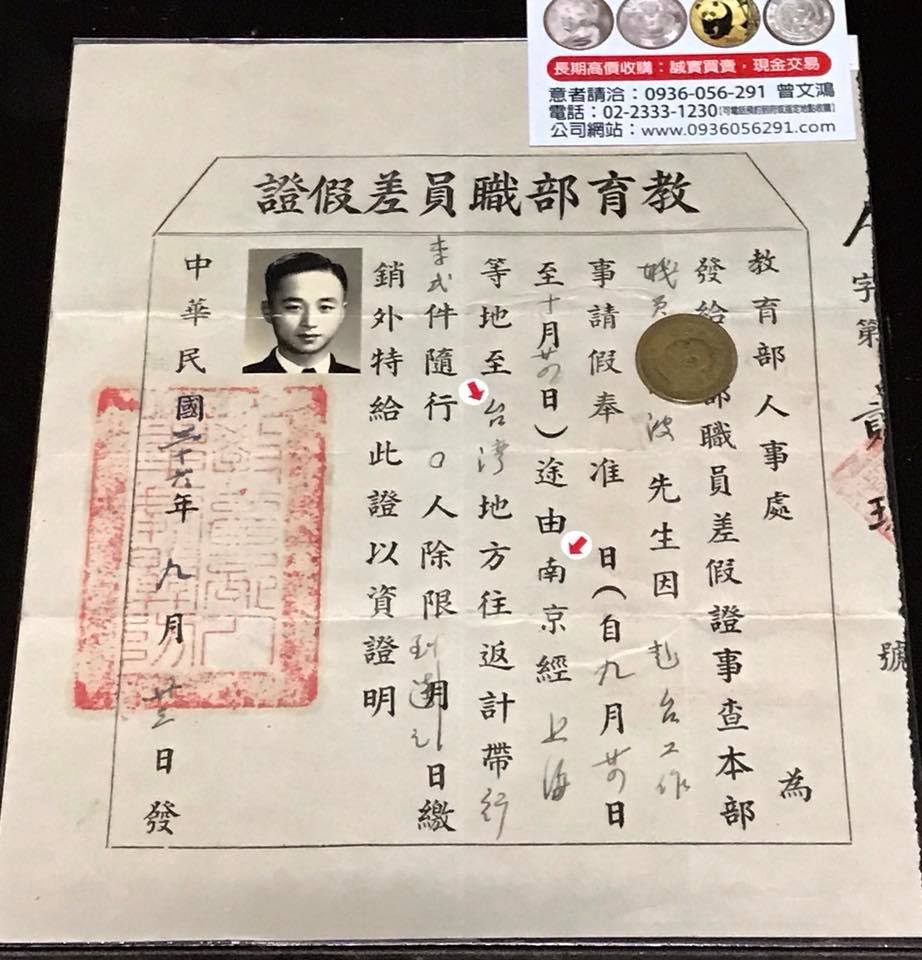 長期高價收購：誠實買賣，現金交易
意者請洽：0936-056-291 曾文鴻
電話：02-2333-1230[可電話預約到府或指定地點收購]
公司網站：www.0936056291.com
教育部職員差假證
字第 號
教育部人事處 為
發給 部職員差假證事查本部
職員 波先生因赴台工作
事請假奉准 日（自九月廿四日
至十月廿四日）途由南京經上海
等地至台灣地方往返計帶行
李弍件隨行〇人除限到達月日繳
銷外特給此證以資證明
中華民國三十六年九月廿三日發